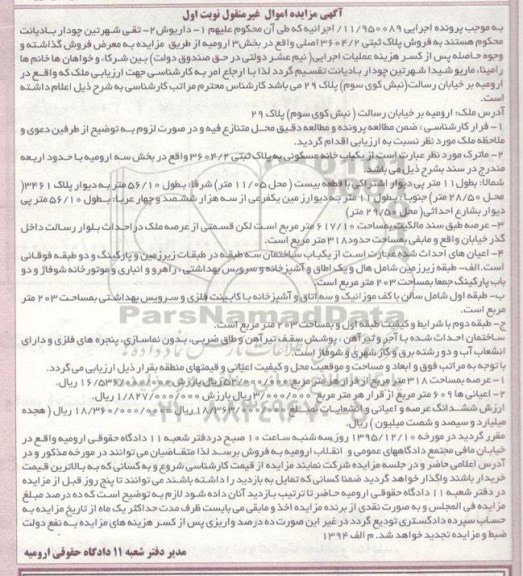 آگهی مزایده اموال غیرمنقول نوبت اول
به موجب پرونده اجرایی 11/950089 اجرائیه که طی آن محکوم علیهم 1- داریوش 2- تقی شهرتین چودار بادیانت
محکوم هستند به فروش پلاک ثبتی 3604/2 اصلی واقع در بخش 3 ارومیه از طریق مزایده به معرض فروش گذاشته و
وجوه حاصله پس از کسر هزینه عملیات اجرایی( نیم عشر دولتی در حق صندوق دولت) بین شرکاء و خواهان ها خانم ها
رامینا، ماریو شیدا شهرتین چودار بادیانت تقسیم گردد لذا با ارجاع امر به کارشناسی جهت ارزیابی ملک که واقع در
ارومیه بر خیابان رسالت(نبش کوی سوم) پلاک 29 می باشد کارشناس محترم مراتب کارشناسی به شرح ذیل اعلام داشته
است.
آدرس ملک: ارومیه بر خیابان رسالت ( نبش کوی سوم) پلاک 29
1- قرار کارشناسی : ضمن مطالعه پرونده و مطالعه دقیق محل متنازع فیه و در صورت لزوم به توضیح از طرفین دعوی و
ملاحظه ملک مورد نظر نسبت به ارزیابی اقدام گردید.
2- ماترک مورد نظر عبارت است از یکباب خانه مسکونی به پلاک ثبتی 3604/2 واقع در بخش سه ارومیه با حدود اربعه
مندرج در سند بشرح ذیل می باشد.
شمالا: بطول 11 متر پی دیوار اشتراکی با قطعه بیست ( محل 11/05 متر) شرقا: بطول 56/10 متر به دیوار پلاک 3461(
محل 28/50 متر) جنوبا: بطول 11 متر به دیوار زمین یکفرعی از سه هزار ششصد و چهار غربا: بطول 56/10 متر پی
دیوار بشارع احداثی( محل 29/50 متر)
3- عرصه طبق سند مالکیت بمساحت 617/10 متر مربع است لکن قسمتی از عرصه ملک در احداث بلوار رسالت داخل
گذر خیابان واقع و مابقی بمساحت حدود 318 متر مربع است.
4- اعیان های احداث شده عبارت است از یکباب ساختمان سه طبقه در طبقات زیرزمین و پارکینگ و دو طبقه فوقانی
است. الف- طبقه زیرزمین شامل هال و یک اطاق و آشپزخانه و سرویس بهداشتی ، راهرو و انباری و موتورخانه شوفاژ و دو
باب پارکینگ جمعا بمساحت 203 متر مربع است.
ب- طبقه اول شامل سالن با کف موزائیک و سه اتاق و آشپزخانه با کابینت فلزی و سرویس بهداشتی بمساحت 203 متر
مربع است.
ج- طبقه دوم با شرایط و کیفیت طبقه اول و بمساحت 203 متر مربع است.
ساختمان احداث شده با آجر و تیرآهن ، پوشش سقف تیرآهن و طاق ضربی، بدون نماسازی، پنجره های فلزی و دارای
انشعاب آب و دو رشته برق و گاز شهری و شوفاژ است.
با توجه به مراتب فوق و ابعاد و مساحت و موقعیت محل و کیفیت اعیانی و قیمتهای منطقه بقرار ذیل ارزیابی می گردد.
1- عرصه بمساحت 318 متر مربع از قرار هر متر مربع 52/000/000 ریال بارزش 16/536/000/000 ریال.
2- اعیانی ها 609 متر مربع از قرار هر متر مربع 3/000/000 ریال بارزش 1/827/000/000 ریال.
ارزش ششدانگ عرصه و اعیانی و انشعابات بمبلغ 18/363/000/000 ریال 18/360/000/000 ریال ( هجده
میلیارد و سیصد و شصت میلیون ) ریال.
مقرر گردید در مورخه 1395/12/10 روز سه شنبه ساعت 10 صبح در دفتر شعبه 11 دادگاه حقوقی ارومیه واقع در
خیابان مافی مجتمع دادگاههای عمومی و انقلاب ارومیه به فروش برسد لذا متقاضیان می توانند در مورخه مذکور و در
آدرس اعلامی حاضر و در جلسه مزایده شرکت نمایند مزایده از قیمت کارشناسی شروع و به کسانی که به بالاترین قیمت
خریدار باشند واگذار خواهد گردید ضمنا کسانی که تمایل به بازدید را داشته باشند می توانند تا پنج روز قبل از مزایده
در دفتر شعبه 11 دادگاه حقوقی ارومیه حاضر تا ترتیب بازدید آنان داده شود لازم به توضیح است که ده درصد مبلغ
مزایده فی المجلس و به صورت نقدی از برنده مزایده اخذ و مابقی می بایست ظرف مدت حداکثر یک ماه از تاریخ مزایده به
حساب سپرده دادگستری تودیع گردد در غیر این صورت ده درصد واریزی پس از کسر هزینه های مزایده به نفع دولت
ضبط و مزایده تجدید خواهد شد. م الف 1394
مدیر دفتر شعبه 11 دادگاه حقوقی ارومیه
ParsNamadData
021-88349670-5